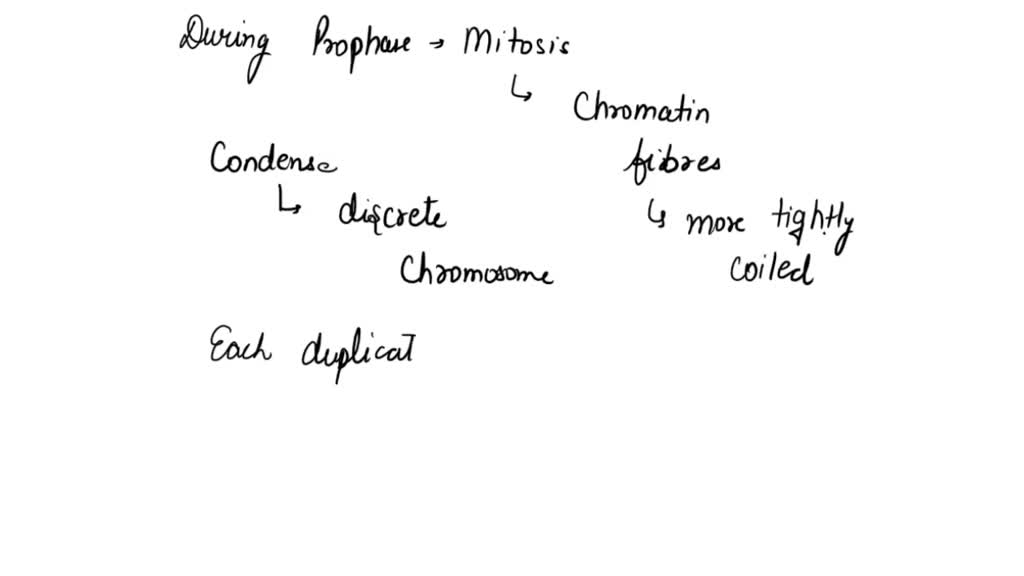 During Prophase → Mitosis
↳ Chromatin
Condense fibres
↳ discrete ↳ more tightly
Chromosome coiled
Each duplicat